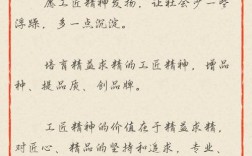 愿工匠精神发扬，让社会少一些
浮躁，多一点沉淀。
培育精益求精的工匠精神，增品
种、提品质、创品牌。
工匠精神的价值在于精益求精，
对匠心、精品的坚持和追求，专业、